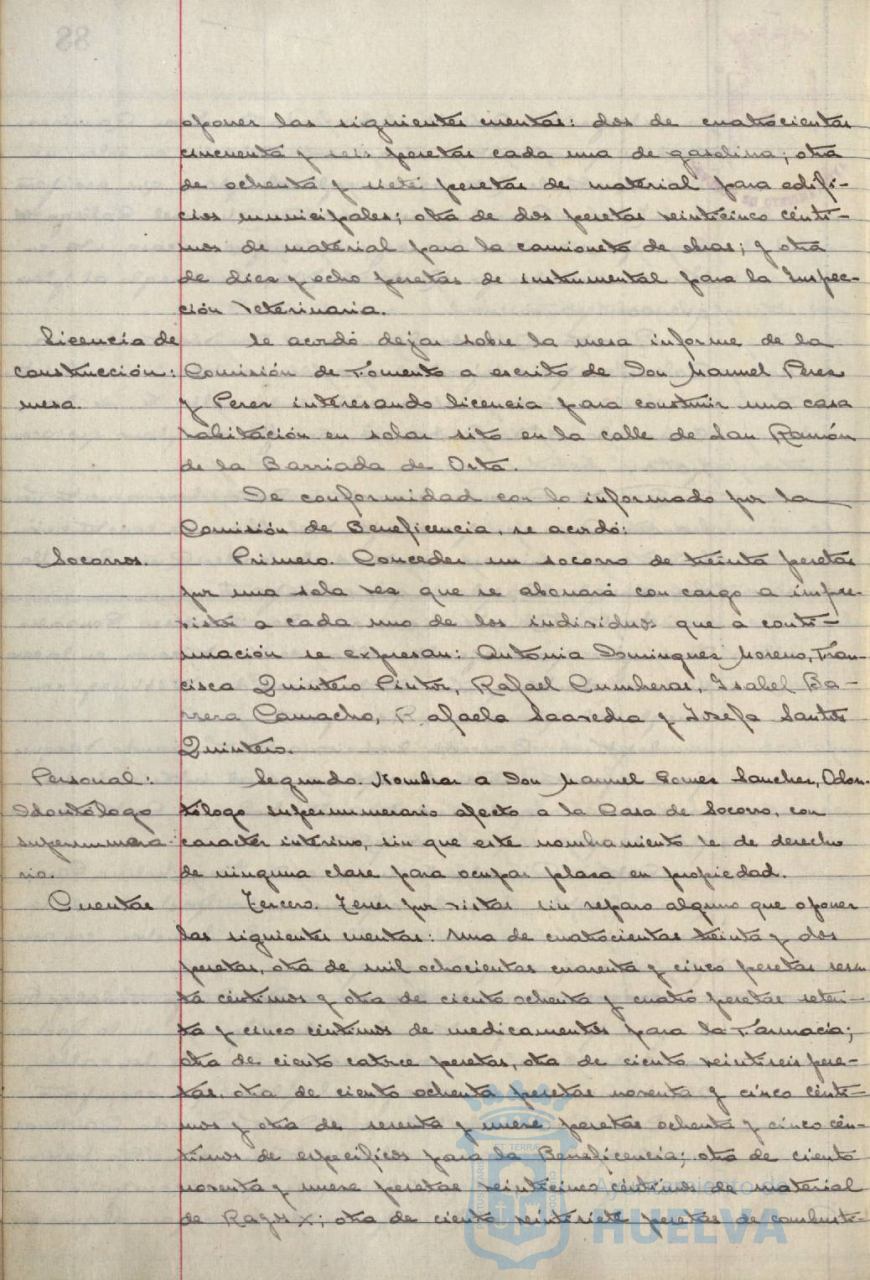 88
oponer las siguientes cuentas: dos de cuatrocientas
cincuenta y seis pesetas cada una de gasolina; otra
de ochenta y siete pesetas de material para edifi-
cios municipales; otra de dos pesetas veinticinco cénti-
mos de material para la camioneta de obras; y otra
de diez y ocho pesetas de instrumental para la Inspec-
ción Veterinaria.
Licencia de
construcción:
mesa.
Se acordó dejar sobre la mesa informe de la
Comisión de Fomento a escrito de Don Manuel Perez
y Perez interesando licencia para construir una casa
habitación en solar sito en la calle de San Ramón
de la Barriada de Orta.
De conformidad con lo informado por la
Comisión de Beneficencia, se acordó:
Socorros.
Primero. Conceder un socorro de treinta pesetas
por una sola vez que se abonará con cargo a impre-
vistos a cada uno de los individuos que a conti-
nuación se expresan: Antonia Dominguez Moreno, Fran-
cisca Quintero Pintor, Rafael Cumbreras, Isabel Ba-
rrera Camacho, Rafaela Saavedra y Josefa Santos
Quintero.
Personal:
Odontólogo
supernumera-
rio.
Segundo. Nombrar a Don Manuel Gomez Sanchez, Odon-
tólogo supernumerario afecto a la Casa de Socorro, con
caracter interino, sin que este nombramiento le de derecho
de ninguna clase para ocupar plaza en propiedad.
Cuentas
Tercero. Tener por vistas sin reparo alguno que oponer
las siguientes cuentas: Una de cuatrocientas treinta y dos
pesetas, otra de mil ochocientas cuarenta y cinco pesetas sesen-
ta céntimos y otra de ciento ochenta y cuatro pesetas seten-
ta y cinco céntimos de medicamentos para la Farmacia;
otra de ciento catorce pesetas, otra de ciento veintiseis pese-
tas, otra de ciento ochenta pesetas noventa y cinco cénti-
mos y otra de sesenta y nueve pesetas ochenta y cinco cén-
timos de especificos para la Beneficencia; otra de ciento
noventa y nueve pesetas veinticinco céntimos de material
de Rayos X; otra de ciento veintisiete pesetas de combusti-
Ayuntamiento de
HUELVA